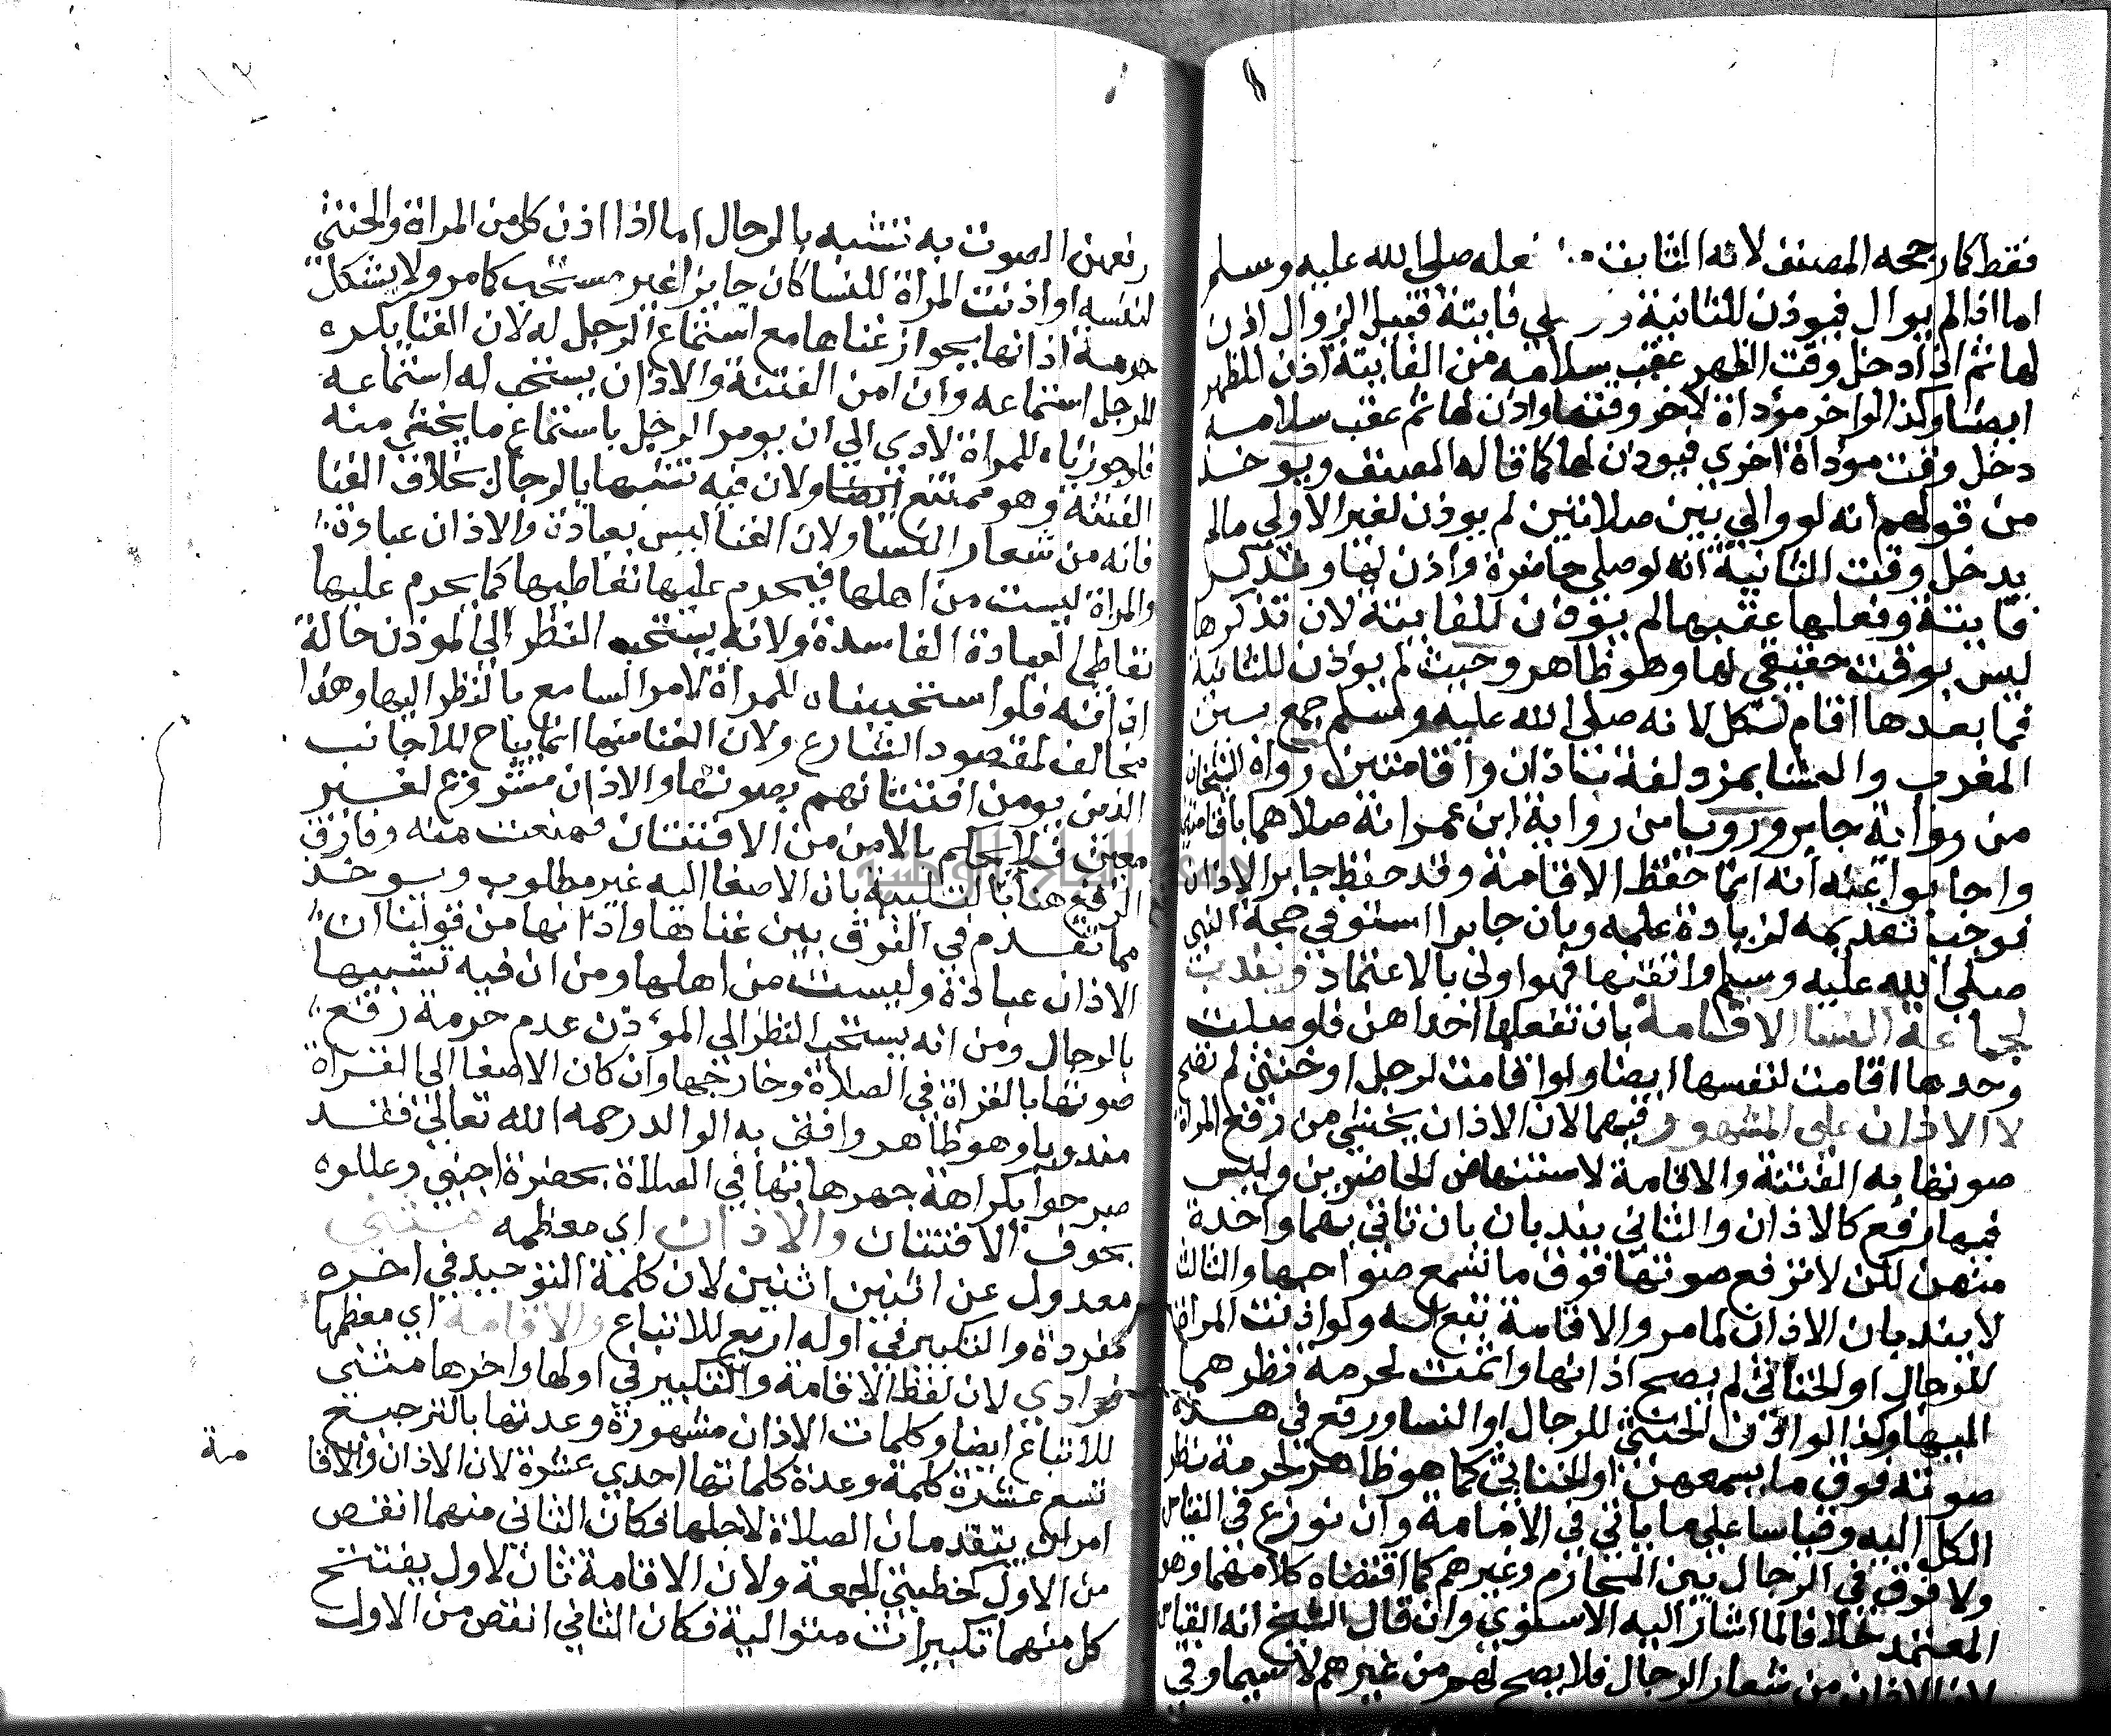 فقط كما رجحه المصنف لانه الثابت من فعله صلى الله عليه وسلم
اما اذا لم يوال فيوذن للثانية فايتة قبيل الزوال اذن
لها ثم اذا دخل وقت الظهر عقب سلامه من الفايتة اذن للظهر
ايضا وكذا لو اخر موداة لاخر وقتها واذن لها ثم عقب سلامه
دخل وقت موداة اخري فيوذن لها كما قاله المصنف ويوخذ
من قولهم انه لو والي بين صلاتين لم يوذن لغير الاولي مالم
يدخل وقت الثانية انه لو صلي حاضرة واذن لها وتذكر
فايتة وفعلها عقبها لم يوذن للفايتة لان تذكرها
ليس بوقت حقيقي لها وهو ظاهر وحيث لم يوذن للثانية
فما بعدها اقام لكل لانه صلى الله عليه وسلم جمع بين
المغرب والعشا بمزدلفة باذان واقامتين رواه الشيخان
من رواية جابر ورويا من رواية ابن عمر انه صلاهما باقامتين
واجابوا عنه انه انما حفظ الاقامة وقد حفظ جابر الاذان
فوجب تقديمه لزيادة علمه وبان جابرا استوفي حجة النبي
صلى الله عليه وسلم واتقنها فهو اولي بالاعتماد ويندب
لجماعة النسا الاقامة بان تفعلها احداهن فلو صلت
وحدها اقامت لنفسها ايضا ولو اقامت لرجل او خنثي لم تصح
لا الاذان علي المشهور فيهما لان الاذان يخشي من رفع المراة
صوتها به الفتنة والاقامة لاستنهاض الحاضرين وليس
فيها رفع كالاذان والثاني يندبان بان تاتي بهما واحدة
منهن لكن لا ترفع صوتها فوق ما تسمع صواحبها والثالث
لا يندبان الاذان لما مر والاقامة تبع له ولو اذنت المراة
للرجال او الخناثي لم يصح اذانها واثمت لحرمة نظرهما
اليها وكذا لو اذن الخنثي للرجال او النسا ورفع في هذه
صوته فوق ما يسمعهن او الخناثي كما هو ظاهر لحرمة نظر
الكل اليه وقياسا علي ما ياتي في الامامة وان نوزع في القياس
ولا فرق في الرجال بين المحارم وغيرهم كما اقتضاه كلامهما وهو
المعتمد خلافا لما اشار اليه الاسنوي وان قال الشيخ انه القياس
لان الاذان من شعار الرجال فلا يصح لهم من غيرهم لا سيما وفي
رفعهن الصوت به تشبه بالرجال اما اذا اذن كل من المراة والخنثي
لنفسه او اذنت المراة للنسا كان جايزا غير مستحب كما مر ولا يشكل
حرمة اذانها بجواز غناها مع استماع الرجل له لان الغنا يكره
للرجل استماعه وان امن الفتنة والاذان يستحب له استماعه
فلو جوزناه للمراة لادي الي ان يومر الرجل باستماع ما يخشي منه
الفتنة وهو ممتنع ايضا ولان فيه تشبها بالرجال بخلاف الغنا
فانه من شعار النسا ولان الغنا ليس بعبادة والاذان عبادة
والمراة ليست من اهلها فيحرم عليها تعاطيها كما يحرم عليها
تعاطي العبادة الفاسدة ولانه يستحب النظر الي الموذن حالة
اذانه فلو استحببناه للمراة لامر السامع بالنظر اليها وهذا
مخالف لمقصود الشارع ولان الغنا منها انما يباح للاجانب
الذين يومن افتتانهم بصوتها والاذان مشروع لغير
معين فلا يحكم بالامن من الافتتان فمنعت منه وفارق
الرفع هنا بالتلبية بان الاصغا اليه غير مطلوب ويوخذ
مما تقدم في الفرق بين غناها واذانها من قولنا ان
الاذان عبادة وليست من اهلها ومن ان فيه تشبيها
بالرجال ومن انه يستحب النظر الي الموذن عدم حرمة رفع
صوتها بالقراة في الصلاة وخارجها وان كان الاصغا الي القراة
مندوبا وهو ظاهر وافتي به الوالد رحمه الله تعالي فقد
صرحوا بكراهة جهرها بها في الصلاة بحضرة اجنبي وعللوه
بخوف الافتتان والاذان اي معظمه مثني
معدول عن اثنين اثنين لان كلمة التوحيد في اخره
مفردة والتكبير في اوله اربع للاتباع والاقامة اي معظمها
فرادي لان لفظ الاقامة والتكبير في اولها واخرها مثنى
للاتباع ايضا وكلمات الاذان مشهورة وعدتها بالترجيع
تسع عشرة كلمة وعدة كلماتها احدي عشرة لان الاذان والاقا
مة
امران يتقدمان الصلاة لاجلها فكان الثاني منهما انقص
من الاول كخطبتي الجمعة ولان الاقامة ثان لاول يفتتح
كل منهما تكبيرات متوالية فكان الثاني انقص من الاول